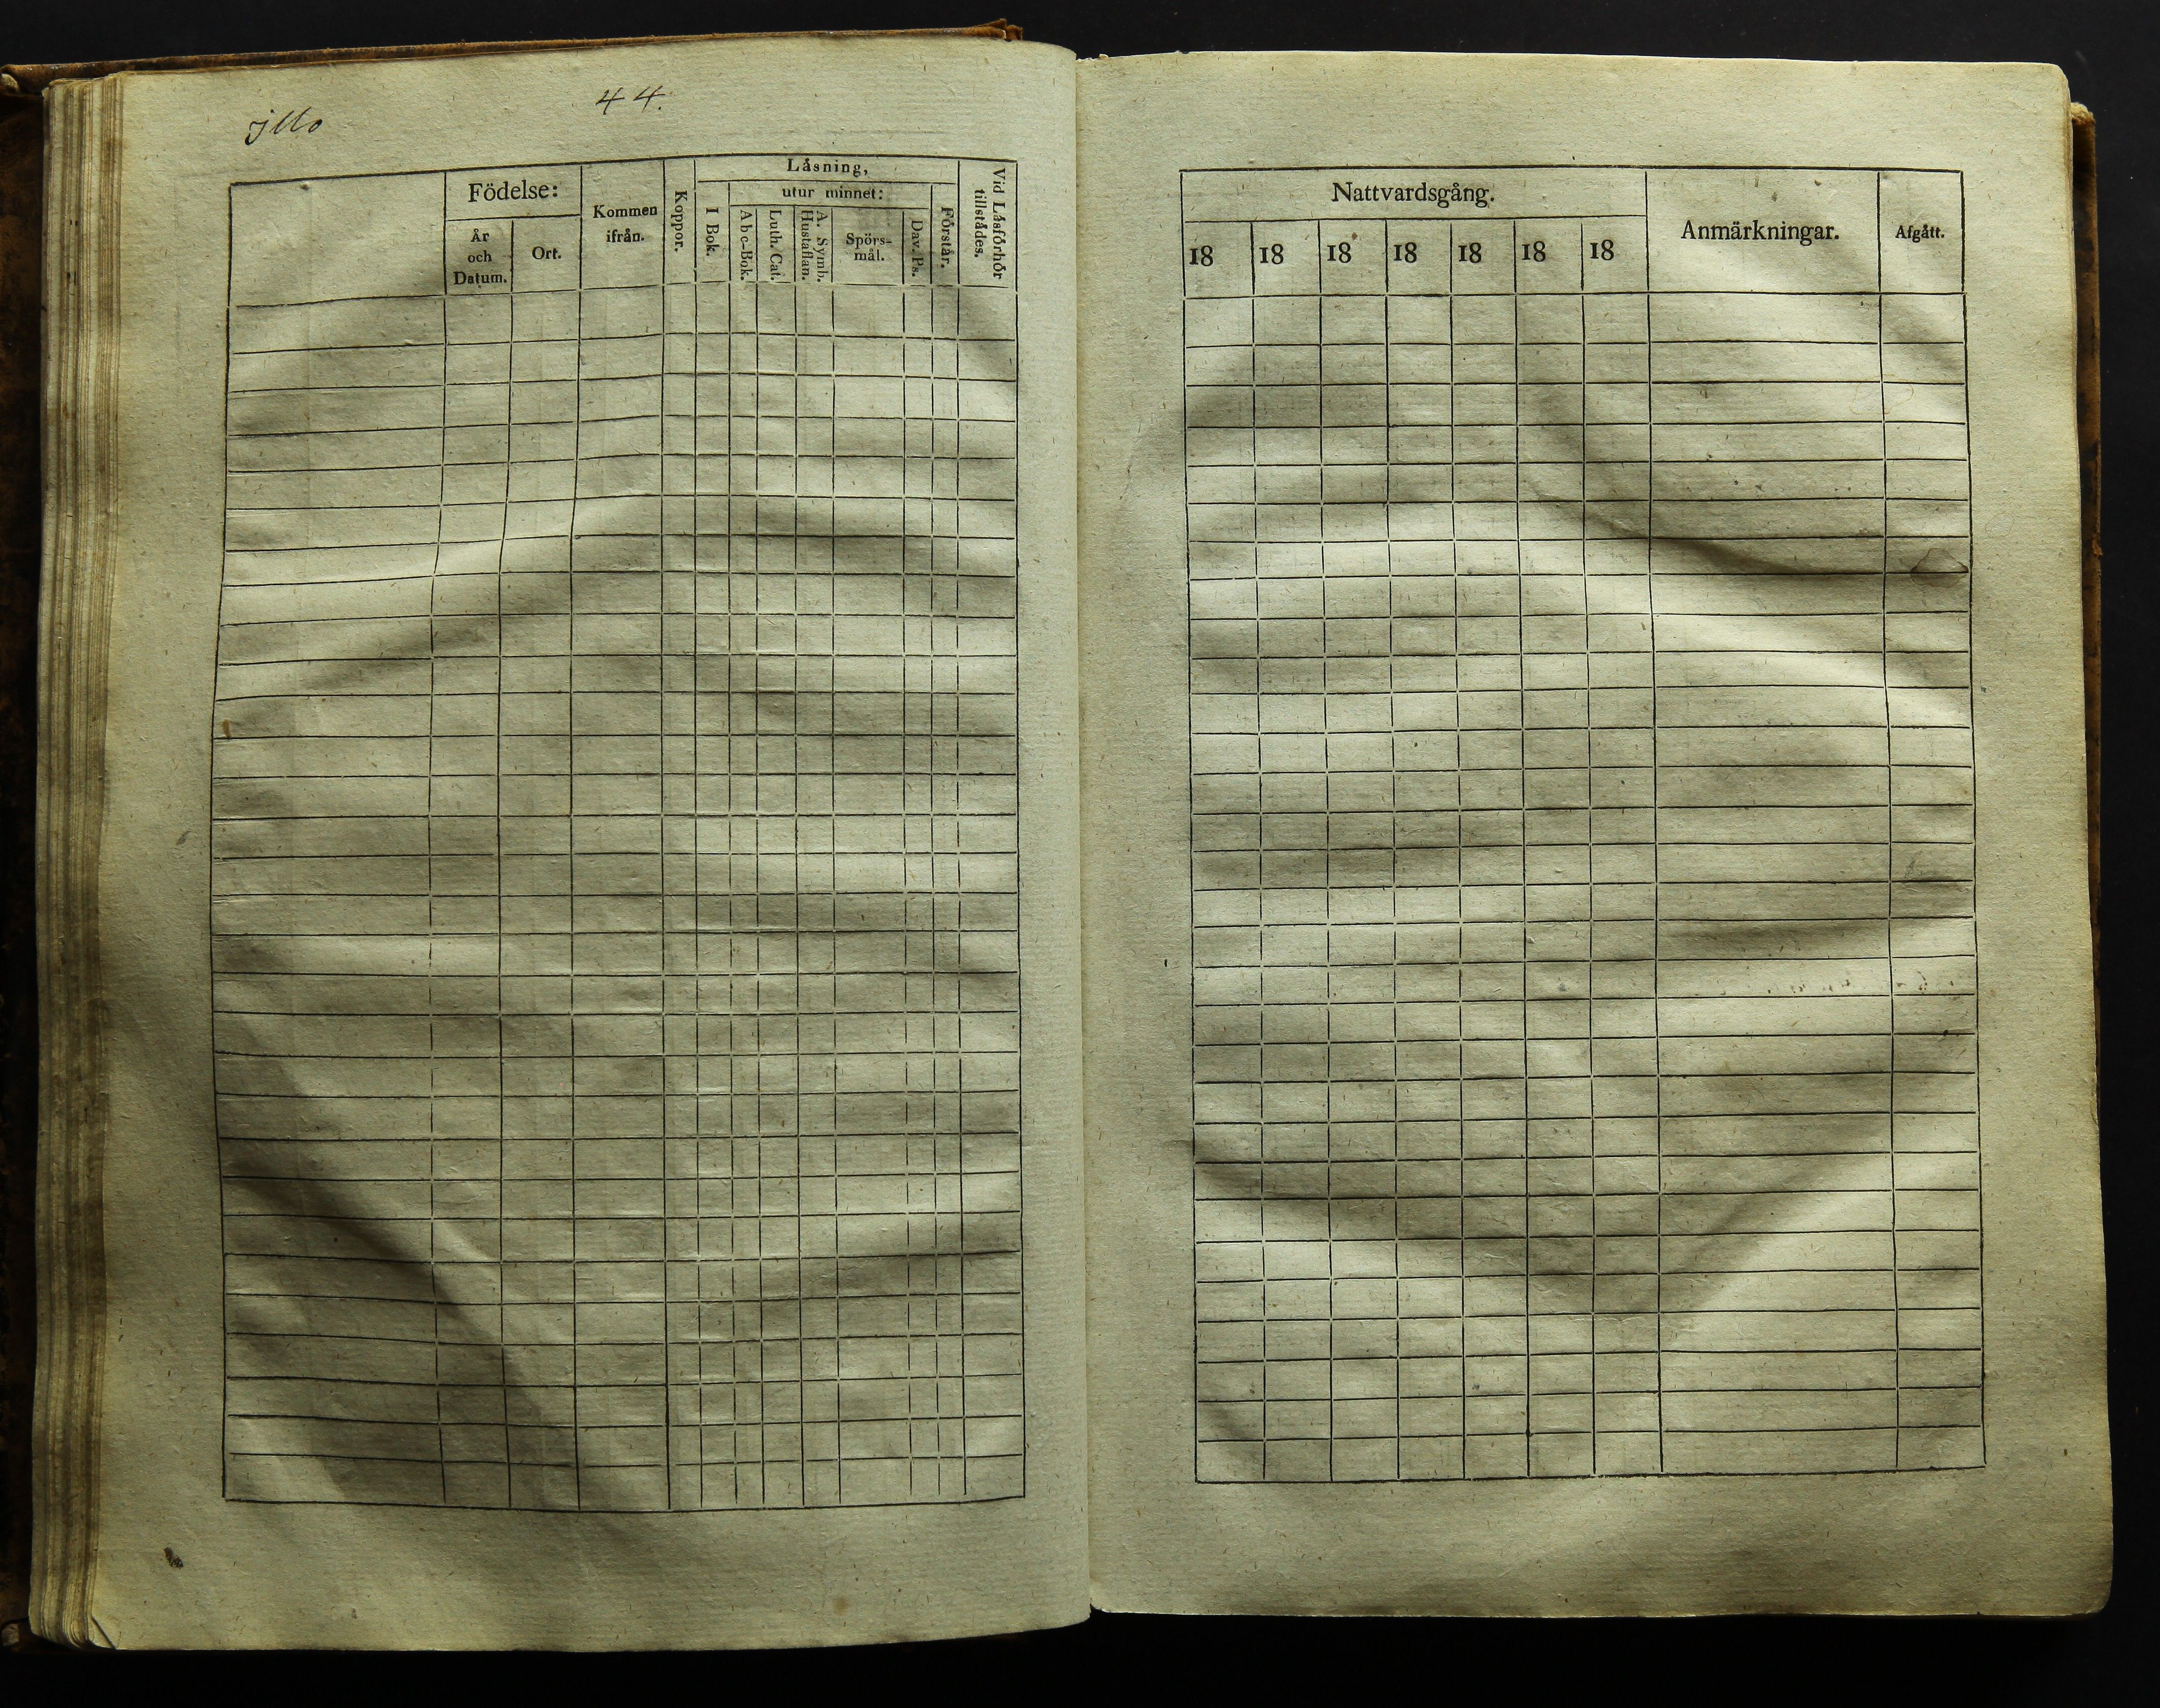 jllo
44.
Födelse:
År
och
Datum.
Ort.
Kommen
ifrån.
Koppor.
Läsning,
I Bok.
utur minnet:
Abc-Bok.
Luth. Cat.
A. Symb.
Hustaflan.
Spörs-
mål.
Dav. Ps.
Förstår.
Vid Läsförhör
tillstädes.
Nattvardsgång.
18 18 18 18 18 18 18
Anmärkningar.
Afgått.